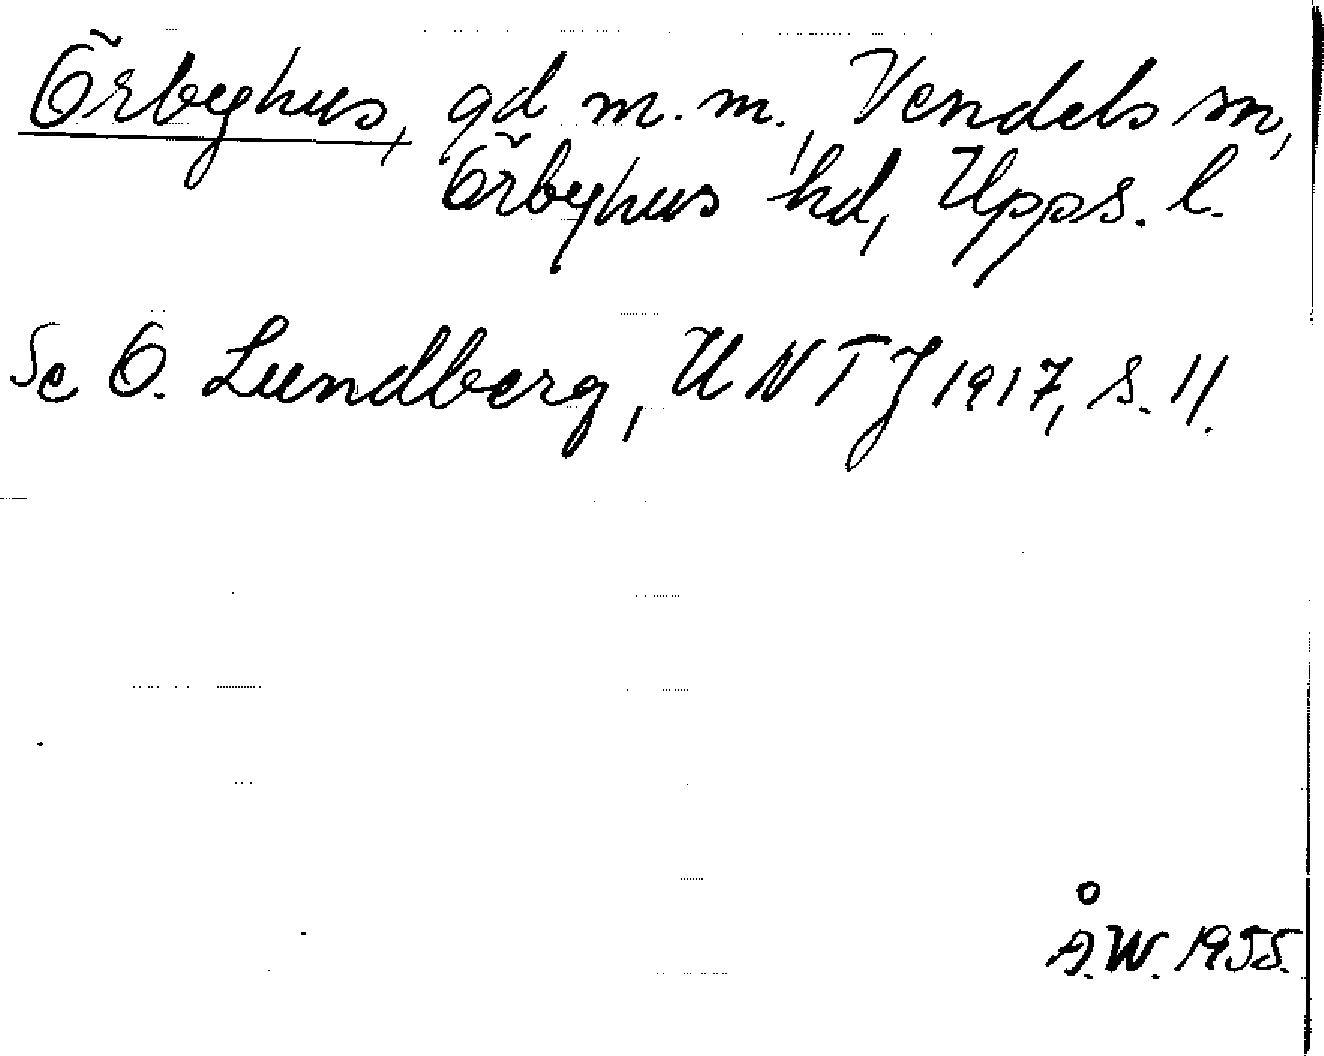 Örbyhus, gd m.m., Vendels sn,
Örbyhus hd, Upps. l.
Se O. Lundberg, UNTJ 1917, s. 11.
Å.W. 1955.